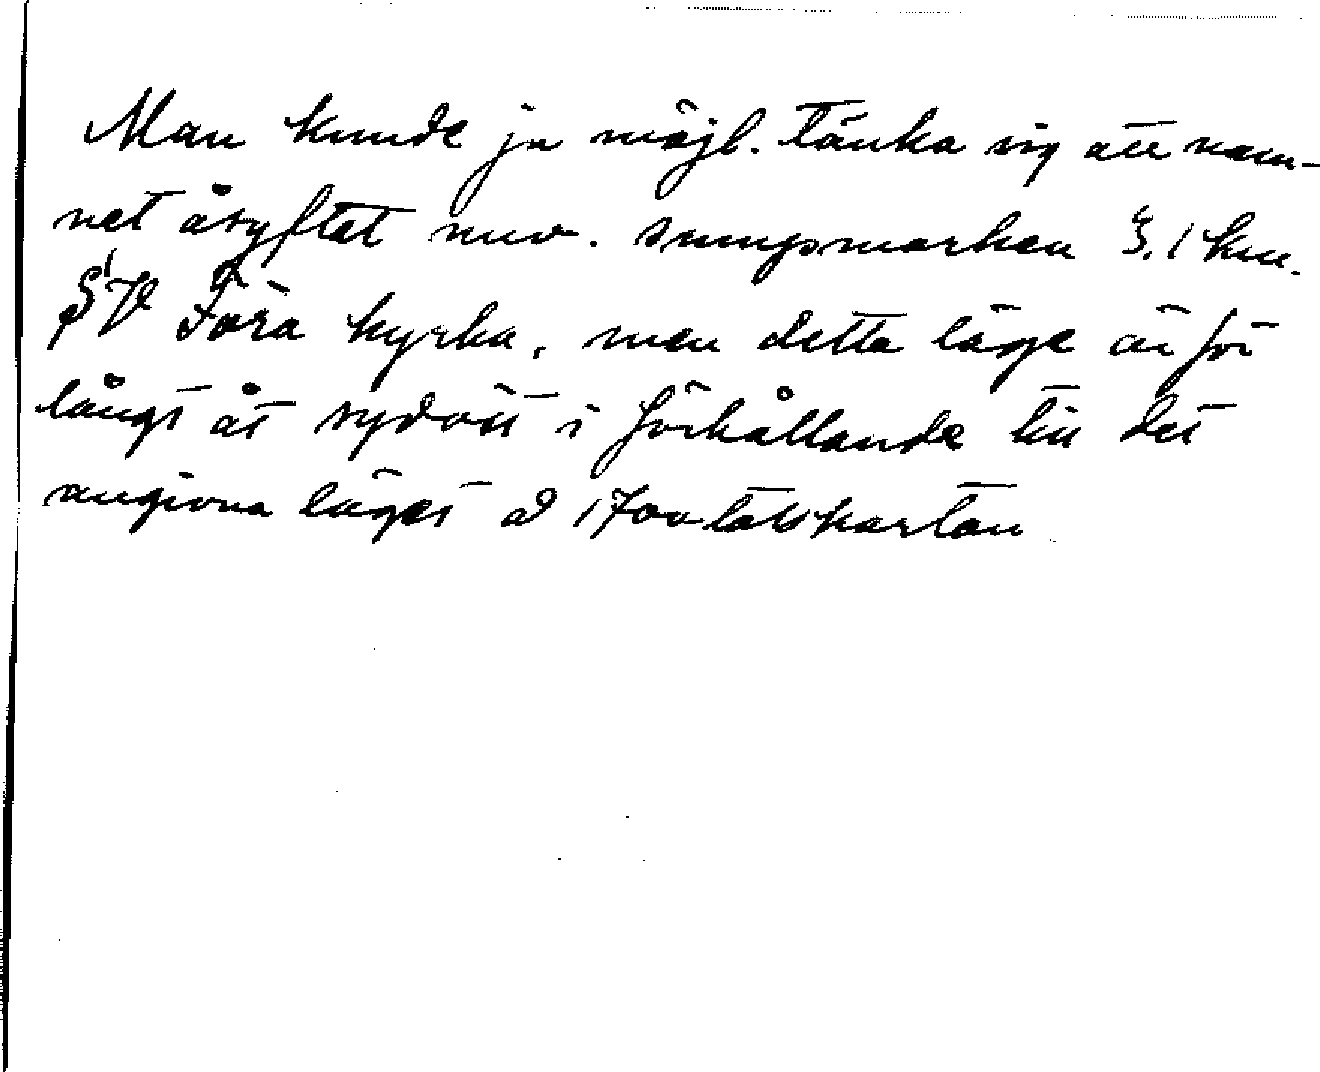 Man kunde ju möjl. tänka sig att nam-
net åsyftat nuv. sumpmarken 3,1 km.
SV Föra kyrka, men detta läge är för
långt åt sydväst i förhållande till det
angivna läget å 1700-talskartan